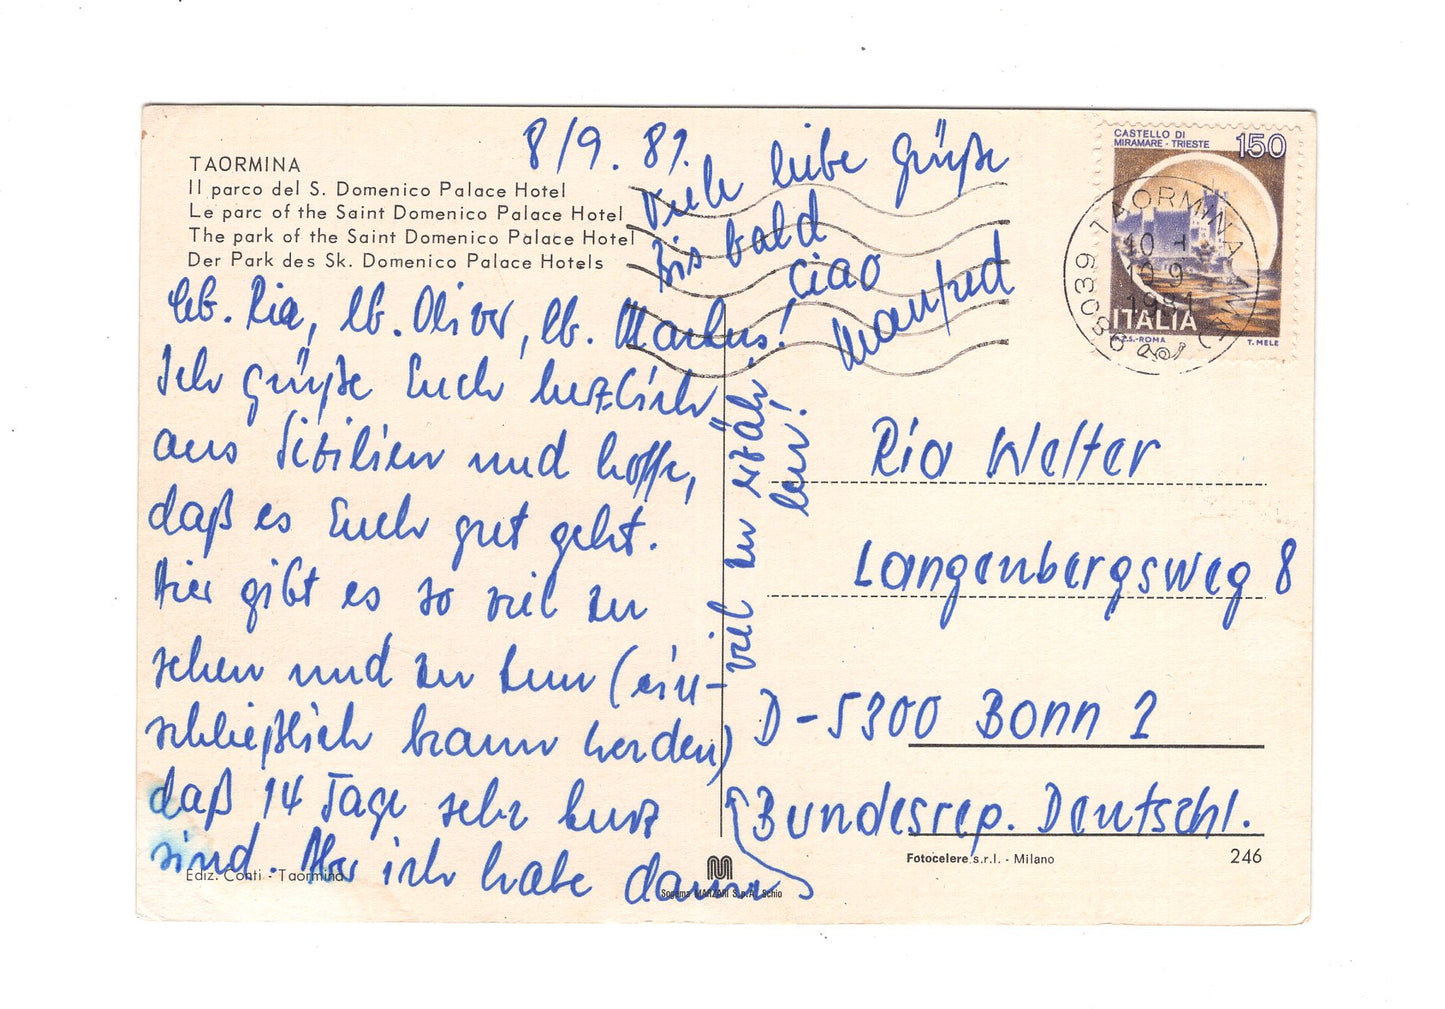 TAORMINA
Il parco del S. Domenico Palace Hotel
Le parc of the Saint Domenico Palace Hotel
The park of the Saint Domenico Palace Hotel
Der Park des Sk. Domenico Palace Hotels
8/9. 81.
lb. Ria, lb. Oliver, lb. Markus!
Ich grüße Euch herzlich
aus Sizilien und hoffe,
daß es Euch gut geht.
Hier gibt es so viel zu
sehen und zu tun (ein-
schließlich braun werden)
daß 14 Tage sehr kurz
sind. Aber ich habe dann
viel zu erzäh-
len!
Viele liebe Grüße
Bis bald
Ciao
Manfred
CASTELLO DI
MIRAMARE - TRIESTE
150
ITALIA
I.P.Z.S.-ROMA
T. MELE
98039 TAORMINA
10
10 9
1981
Ria Welter
Langenbergsweg 8
D-5300 Bonn 2
Bundesrep. Deutschl.
Fotocelere s.r.l. - Milano
246
Ediz. Conti - Taormina
Sogema MARZARI S.p.A. Schio